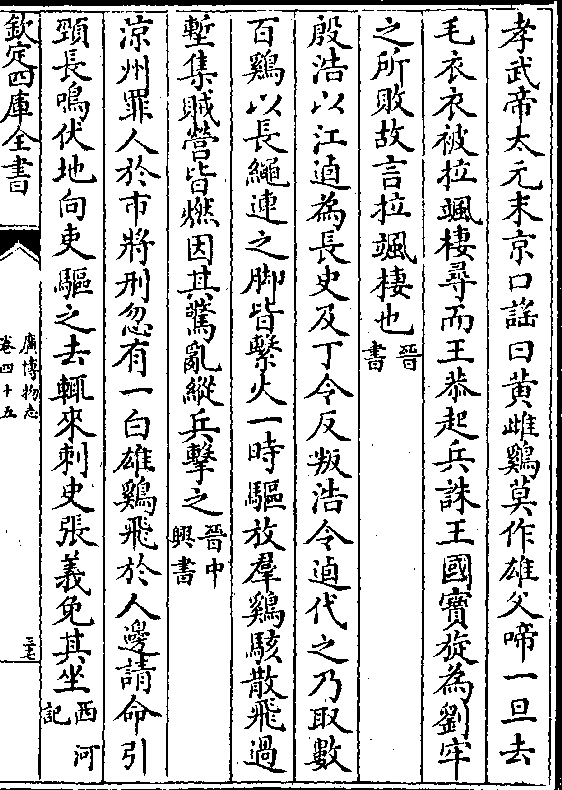 孝武帝太元末京口謡曰黄雌鷄莫作雄父啼一旦去
毛衣衣被拉颯棲尋而王恭起兵誅王國寳旋為劉牢
之所敗故言拉颯棲也晉書
殷浩以江逌為長史及丁令反叛浩令逌代之乃取數
百鷄以長繩連之脚皆繫火一時驅放羣鷄駭散飛過
塹集賊營皆燃因其驚亂縱兵擊之晉中興書
涼州罪人於市將刑忽有一白雄鷄飛於人邊請命引
頸長鳴伏地向吏驅之去輒來刺史張義免其坐西河記
欽定四庫全書
廣博物志
卷四十五
三七